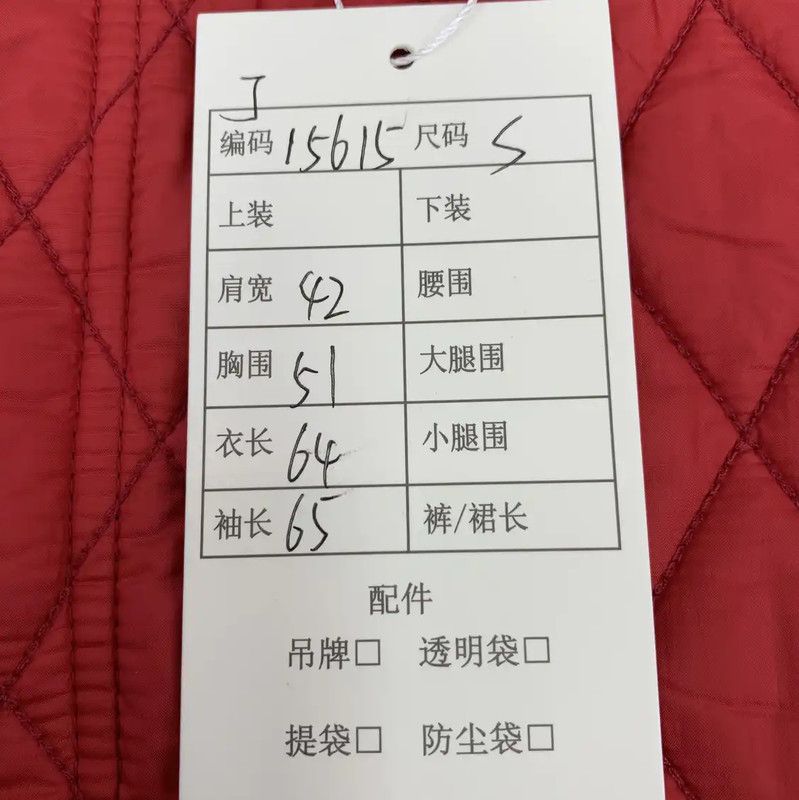 J
编码 15615 尺码 S
上装 下装
肩宽 42 腰围
胸围 51 大腿围
衣长 64 小腿围
袖长 65 裤/裙长
配件
吊牌□ 透明袋□
提袋□ 防尘袋□